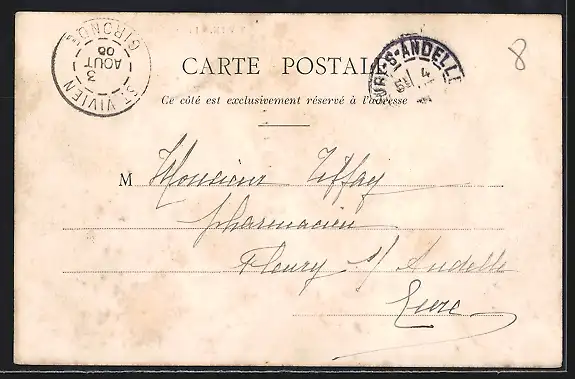 ST VIVIEN
GIRONDE
3
AOUT
8
CARTE POSTALE
S-ANDELLE
4
Ce côté est exclusivement réservé à l'adresse
M Monsieur Tiffay
pharmacien
Fleury s/ Andelle
Eure